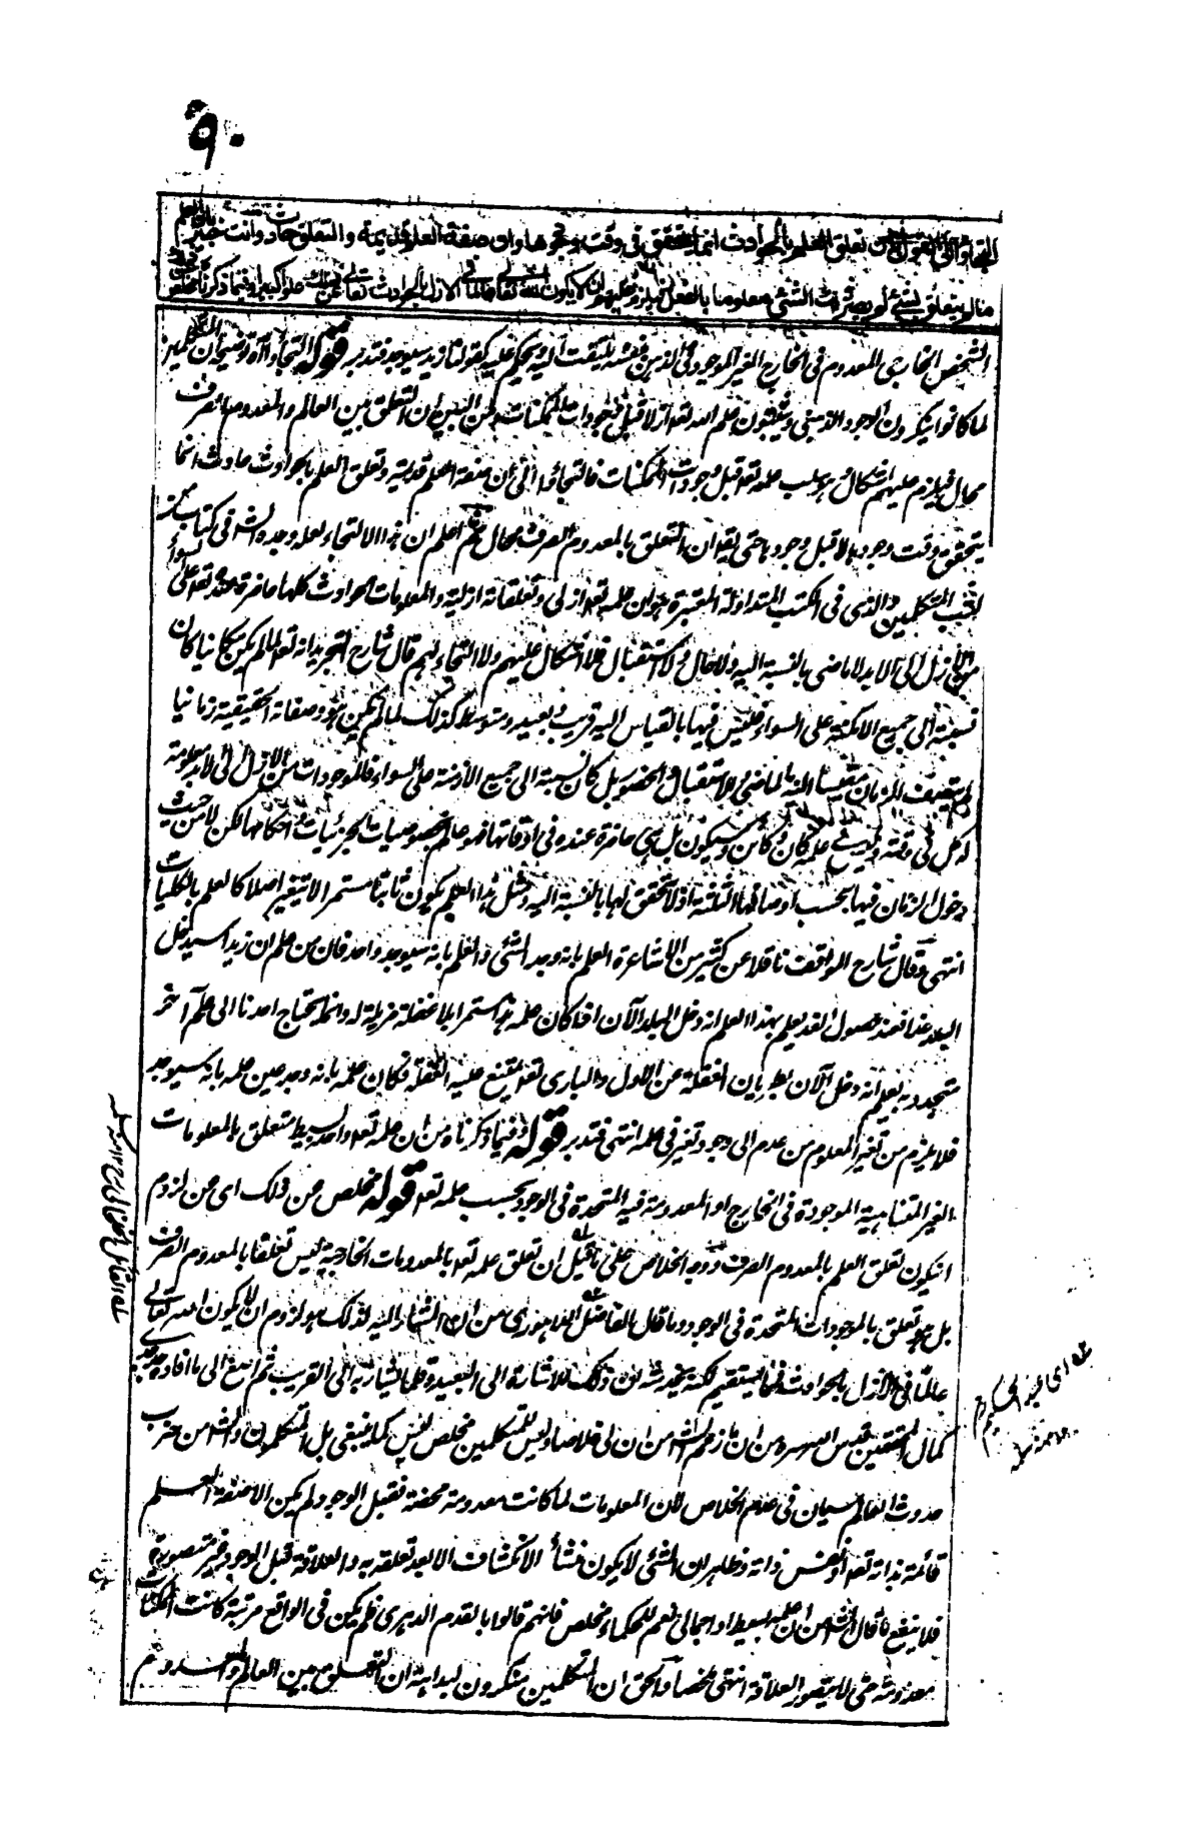 ٩٠
التجأوا إلى القول بأن تعلق العلم بالحوادث انما يتحقق فى وقت وجودها وان صفة العلم قديمة والتعلق حادث وانت خبير بان العلم
مالم يتعلق بشئ لم يصر ذلك الشئ معلوما بالفعل فيلزم عليهم ان لا يكون الله تعالى عالما فى الازل بالحوادث تعالى عن ذلك علوا كبيرا وفيما ذكرنا مخلص
الشخص الخارجى المعدوم فى الخارج الغير الموجود فى الذهن فنفسه يلتفت اليه ويحكم عليه كقولنا زيد سيوجد فتدبر قوله التجأوا آه توضيحه ان المتكلمين
لما كانوا ينكرون الوجود الذهنى ويثبتون علم الله تعه ازلا قبل وجودات الممكنات ومن البين ان التعلق بين العالم والمعدوم الصرف
محال فيلزم عليهم اشكال وهو سلب علمه تعه قبل وجودات الممكنات فالتجأوا الى ان صفة العلم قديمة وتعلق العلم بالحوادث حادث انما
يتحقق وقت وجودها لا قبل وجودها حتى يقه ان التعلق بالمعدوم الصرف محال ثم اعلم ان هذا الالتجاء لعله وجده الشه فى كتاب من
كتب المتكلمين والذى فى الكتب المتداولة المعتبرة هو ان علمه تعه ازلى وتعلقاته ازلية والمعلومات الحوادث كلها حاضرة عنده تعه على السواء
من الازل الى الابد لا ماضى بالنسبة اليه ولا حال ولا استقبال فلا اشكال عليهم ولا التجاء لهم قال شارح التجريد انه تعه لما لم يكن مكانيا كان
نسبته الى جميع الامكنة على السواء فليس فيها بالقياس اليه قريب وبعيد ومتوسط كذلك لما لم يكن هو وصفاته الحقيقية زمانيا
لم يتصف الزمان مقيسا اليه بالماضى والاستقبال والحضور بل كان نسبته الى جميع الازمنة على السواء فالموجودات من الازل الى الابد معلومة
له كل فى وقته وليس فى علمه كان وكائن وسيكون بل هى حاضرة عنده فى اوقاتها فهو عالم بخصوصيات الجزئيات واحكامها لكن لا من حيث
دخول الزمان فيها بحسب اوصافها الثلثة اذ لا تحقق لها بالنسبة اليه ومثل هذا العلم يكون ثابتا مستمرا لا يتغير اصلا كالعلم بالكليات
انتهى وقال شارح المواقف ناقلا عن كثير من الاشاعرة العلم بانه وجد الشئ والعلم بانه سيوجد واحد فان من علم ان زيدا سيدخل
البلد غدا فعند حصول الغد يعلم بهذا العلم انه دخل البلد الآن اذا كان علمه هذا مستمرا بلا غفلة مزيلة له وانما يحتاج احدنا الى علم آخر
متجدد به يعلم انه دخل الآن بطريان الغفلة عن الاول والبارى تعه يمتنع عليه الغفلة فكان علمه بانه وجد عين علمه بانه سيوجد
فلا يلزم من تغير المعلوم من عدم الى وجود تغير فى علمه انتهى فتدبر قوله وفيما ذكرناه من ان علمه تعه واحد بسيط متعلق بالمعلومات
الغير المتناهية الموجودة فى الخارج او المعدومة فيه المتحدة فى الوجود بحسب علمه تعه قوله مخلص عن ذلك اى عن لزوم
ان يكون تعلق العلم بالمعدوم الصرف ووجه الخلاص على ما قيل ان تعلق علمه تعه بالمعدومات الخارجية ليس تعلقا بالمعدوم الصرف
بل هو تعلق بالموجودات المتحدة فى الوجود وما قال الفاضل اللاهورى من ان المشار اليه لذلك هو لزوم ان لا يكون الله تعالى
عالما فى الازل بالحوادث فما يستقيم لكنه يخدشه ان ذلك للاشارة الى البعيد وقلما يشار به الى القريب ثم اصغ الى ما افاده جدى
كمال المحققين قدس الله سره من ان ما زعم الشه من ان لى خلاصا وليس للمتكلمين مخلص ليس كما ينبغى بل المتكلمون والشه من حزب
حدوث العالم سيان فى عدم الخلاص لان المعلومات لما كانت معدومة محضة فقبل الوجود لم يكن الا صفة العلم
قائمة بذاته تعه او نفس ذاته وظاهر ان الشئ لا يكون منشأ الانكشاف الا بعد تعلقه به والعلاقة قبل الوجود غير متصورة
فلا ينفع ما قال الشه من ان علمه بسيط او اجمالى نعم للحكماء مخلص فانهم قالوا بالقدم الدهرى فلم يكن فى الواقع مرتبة كانت الممكنات
معدومة حتى لا يتصور العلاقة انتهى ملخصا والحق ان المتكلمين منكرون لبداهة ان التعلق بين العالم والمعدوم